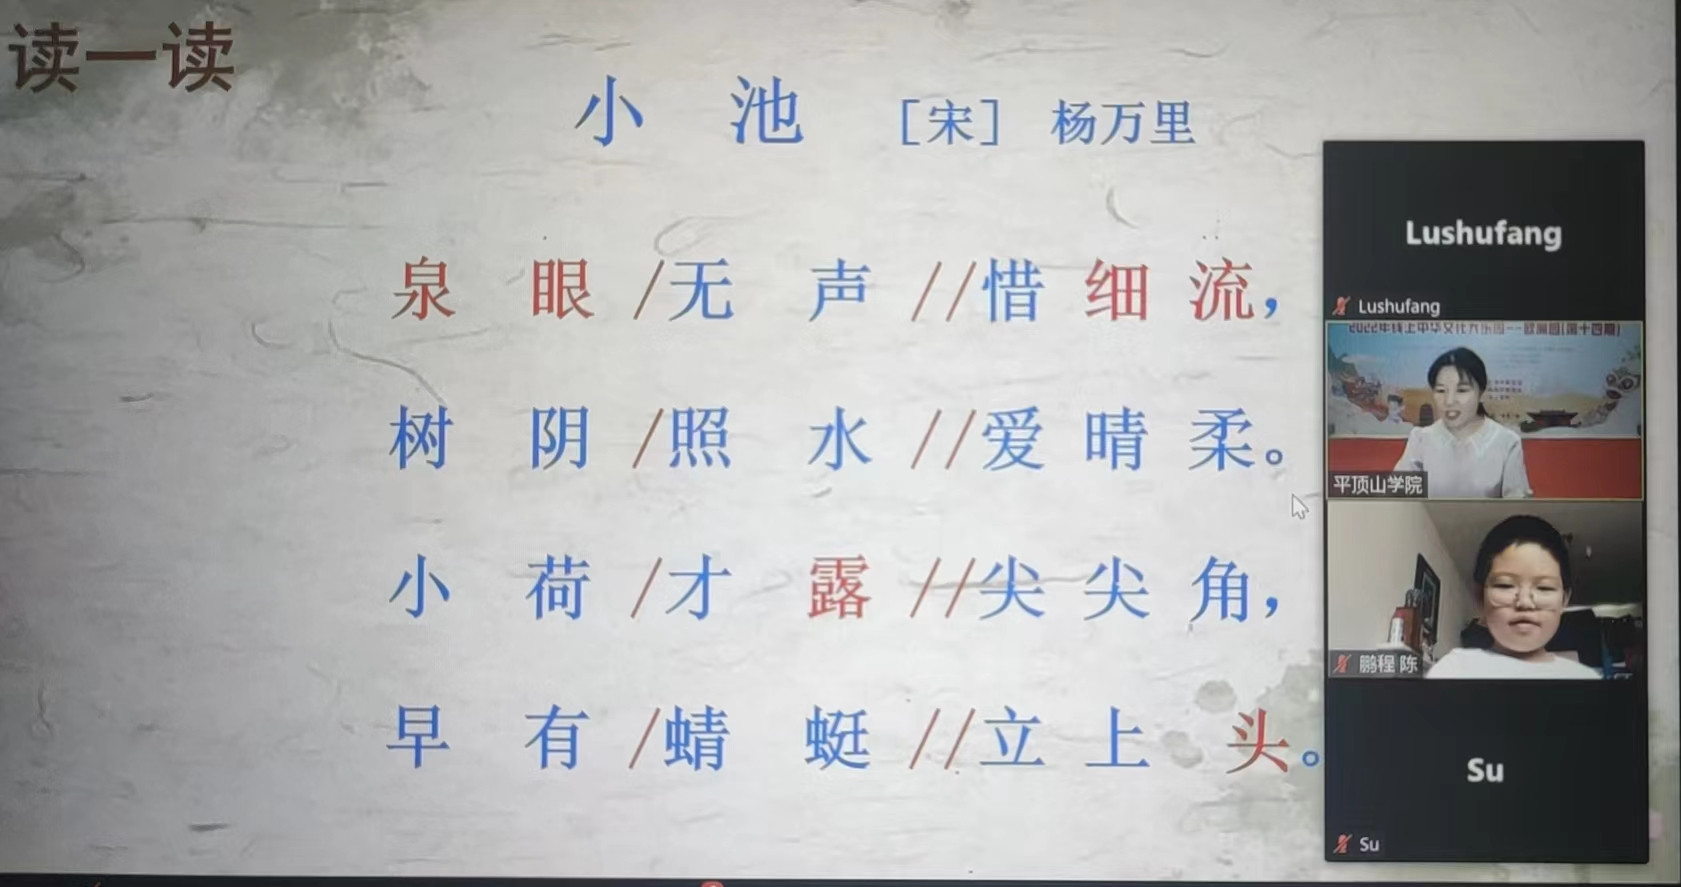 读一读
小 池 [宋] 杨万里
泉 眼 /无 声 //惜 细 流，
树 阴 /照 水 //爱 晴 柔。
小 荷 /才 露 //尖 尖 角，
早 有 /蜻 蜓 //立 上 头。
Lushufang
Lushufang
2022年线上中华文化大乐园--欧洲园(第十四期)
平顶山学院
鹏程 陈
Su
Su